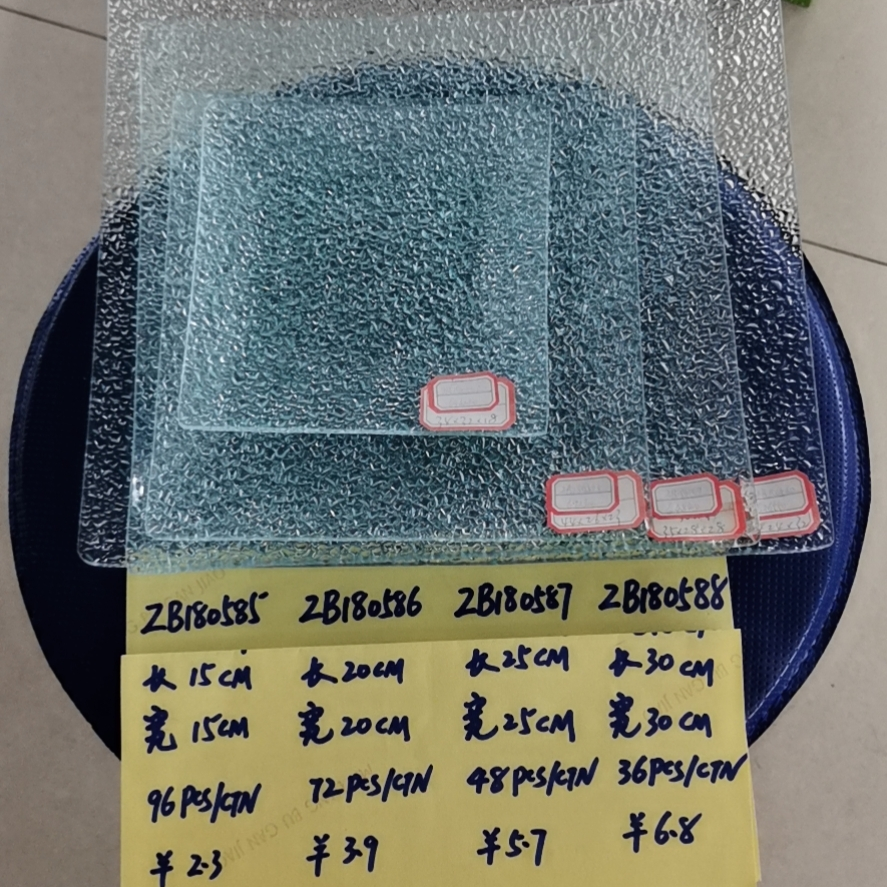 38×32×19
44×23×23
35×28×28
ZB180585 ZB180586 ZB180587 ZB180588
长 15CM 长 20CM 长 25CM 长 30CM
宽 15CM 宽 20CM 宽 25CM 宽 30CM
96PCS/CTN 72PCS/CTN 48PCS/CTN 36PCS/CTN
¥2.3 ¥3.9 ¥5.7 ¥6.8